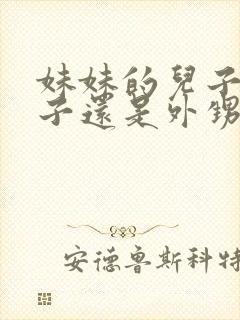 妹妹的兒子
子還是外甥
安德魯斯科特